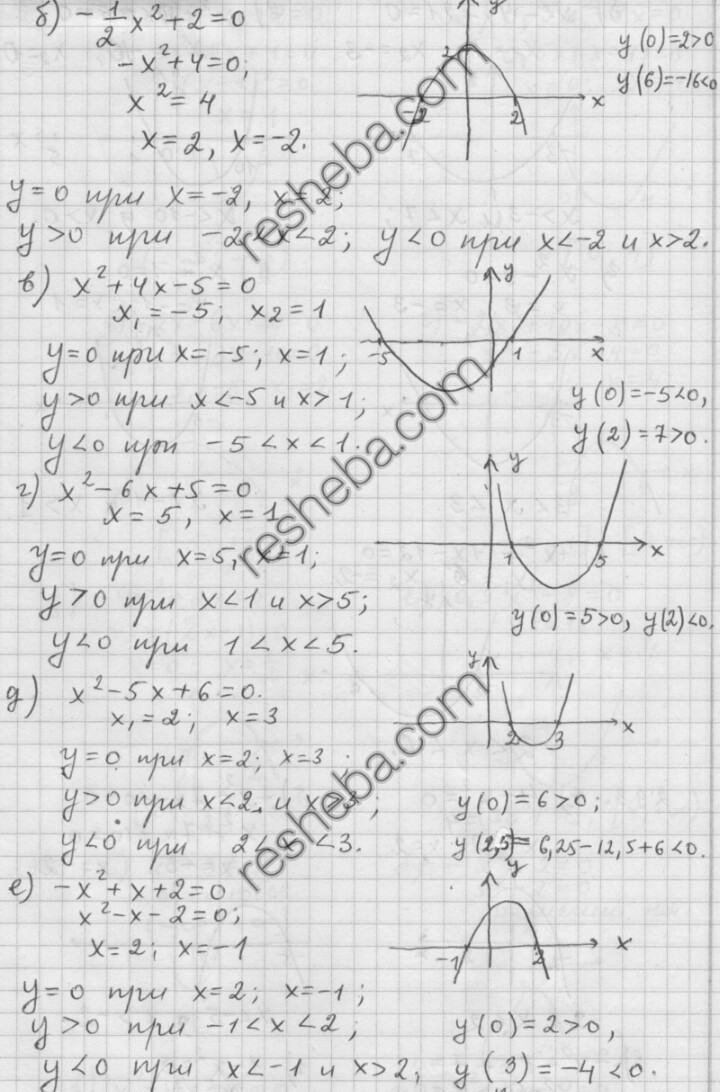 б) -1/2 x² + 2 = 0
-x² + 4 = 0;
x² = 4
x = 2, x = -2.
y
2
-2
2
x
y(0) = 2 > 0
y(6) = -16 < 0
y = 0 при x = -2, x = 2;
y > 0 при -2 < x < 2; y < 0 при x < -2 и x > 2.
в) x² + 4x - 5 = 0
x₁ = -5; x₂ = 1
y = 0 при x = -5; x = 1;
y > 0 при x < -5 и x > 1;
y < 0 при -5 < x < 1.
y
-5
1
x
y(0) = -5 < 0,
y(2) = 7 > 0.
г) x² - 6x + 5 = 0
x = 5, x = 1
y = 0 при x = 5, x = 1;
y > 0 при x < 1 и x > 5;
y < 0 при 1 < x < 5.
y
1
5
x
y(0) = 5 > 0, y(2) < 0.
д) x² - 5x + 6 = 0.
x₁ = 2; x = 3
y = 0 при x = 2; x = 3;
y > 0 при x < 2 и x > 3;
y < 0 при 2 < x < 3.
y
2
3
x
y(0) = 6 > 0;
y(2,5) = 6,25 - 12,5 + 6 < 0.
е) -x² + x + 2 = 0
x² - x - 2 = 0;
x = 2; x = -1
y
-1
2
x
y = 0 при x = 2; x = -1;
y > 0 при -1 < x < 2;
y(0) = 2 > 0,
y < 0 при x < -1 и x > 2,
y(3) = -4 < 0.
resheba.com
resheba.com
resheba.com